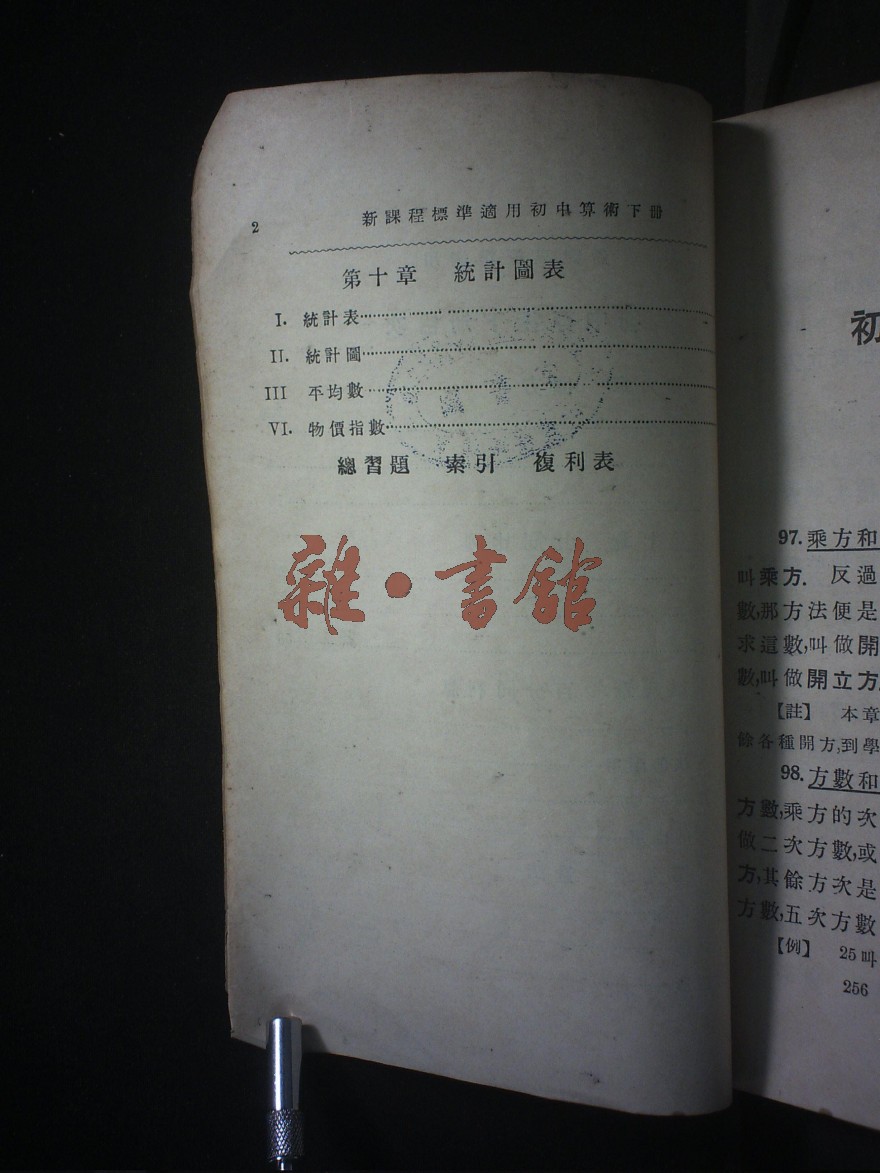 2
新課程標準適用初中算術下冊
第十章 統計圖表
I. 統計表
II. 統計圖
III 平均數
VI. 物價指數
總習題 索引 複利表
雜·書館
初
97. 乘方和
叫乘方. 反過
數,那方法便是
求這數,叫做開
數,叫做開立方
【註】 本章
餘各種開方,到學
98. 方數和
方數,乘方的次
做二次方數,或
方,其餘方次是
方數,五次方數
【例】 25叫
256